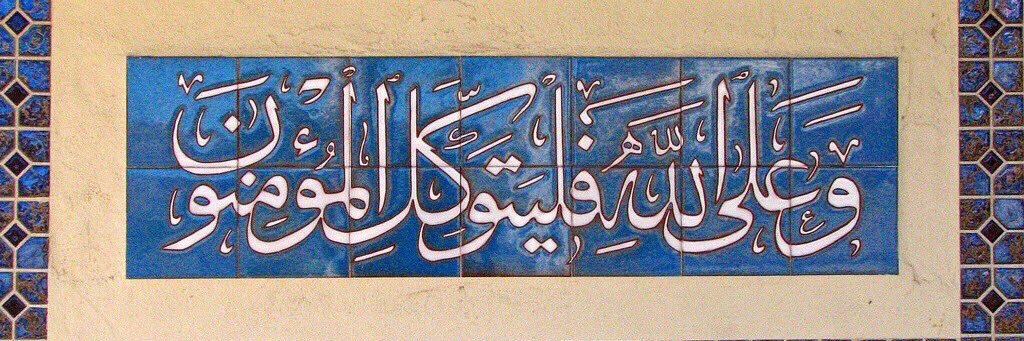 وَعَلَى اللَّهِ فَلْيَتَوَكَّلِ الْمُؤْمِنُونَ